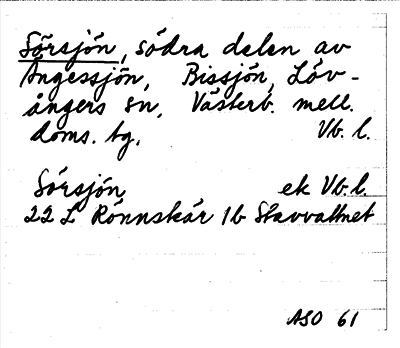 Sörsjön, södra delen av
Ängessjön, Bissjön, Löv-
ångers sn, Västerb. mell.
doms. tg. Vb. l.
Sörsjön ek Vb. l.
22 L Rönnskär 1b Stavvattnet
ASO 61